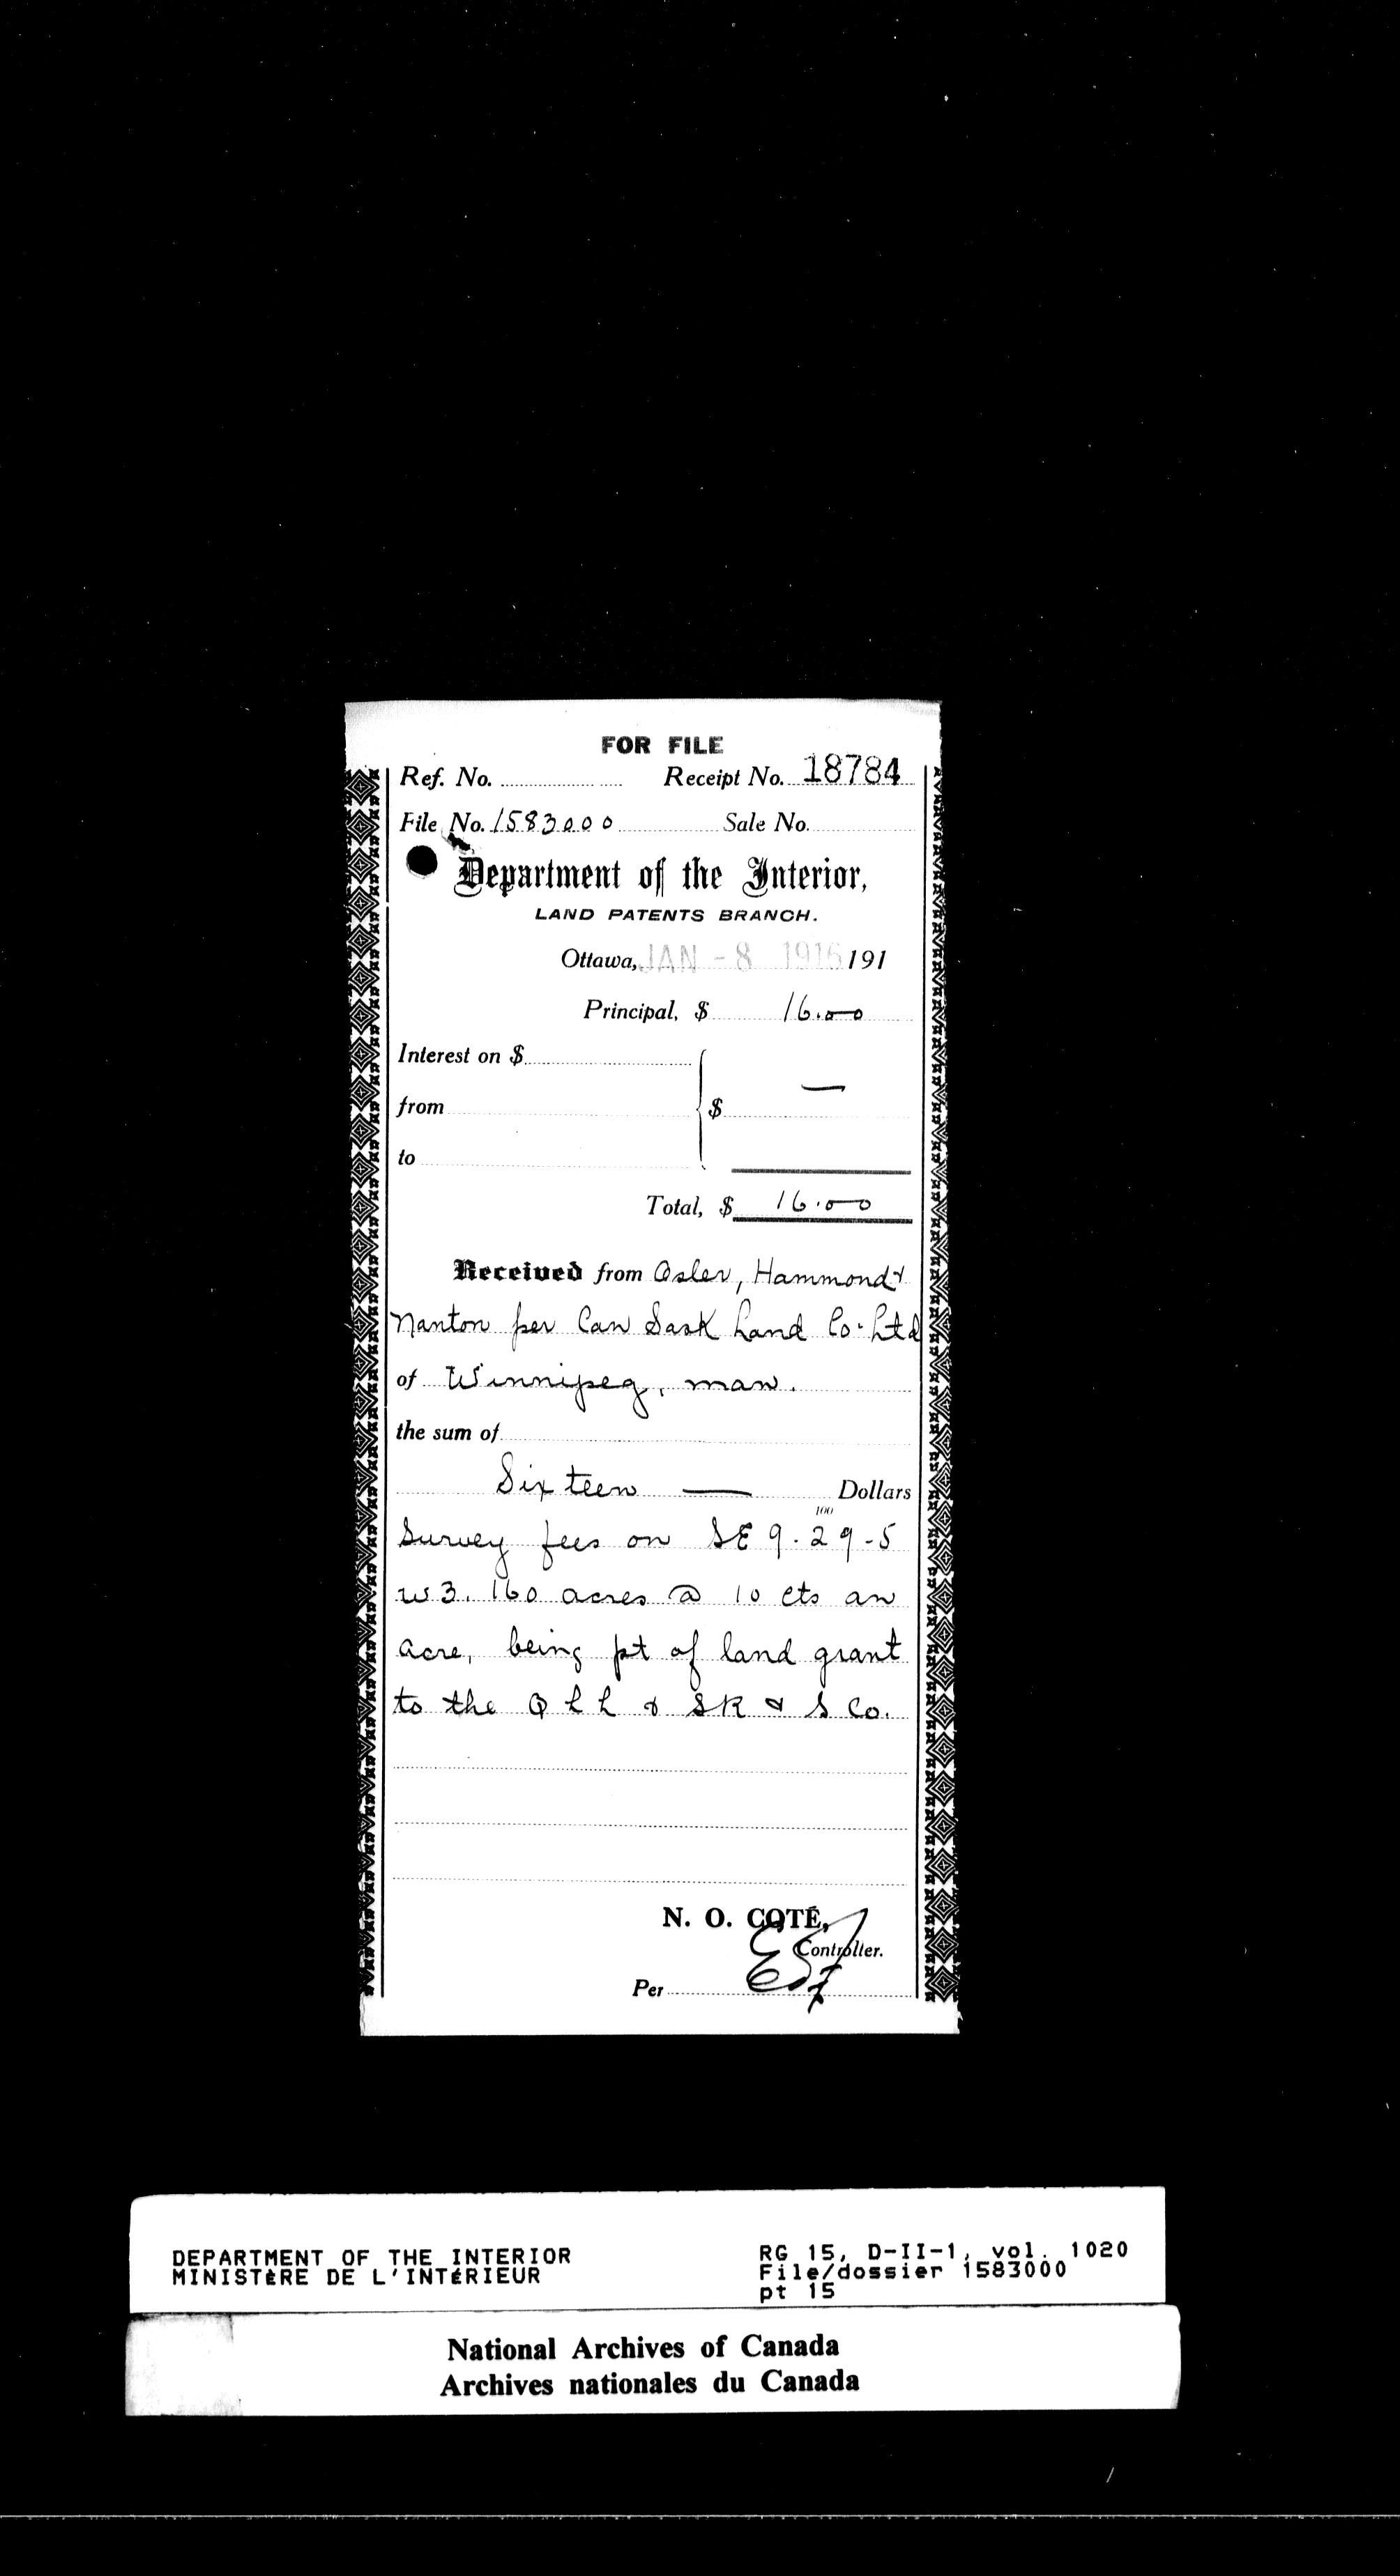 FOR FILE
Ref. No. Receipt No. 18784
File No. 1583000 Sale No.
Department of the Interior,
LAND PATENTS BRANCH.
Ottawa, JAN - 8 1916 191
Principal, $ 16.00
Interest on $
from $ —
to
Total, $ 16.00
Received from Osler, Hammond &
Nanton per Can Sask Land Co. Ltd
of Winnipeg, Man.
the sum of
Sixteen — Dollars
100
Survey fees on SE 9-29-5
W3. 160 acres @ 10 cts an
acre, being pt of land grant
to the Q L L & S R & S Co.
N. O. COTÉ,
Controller.
Per
DEPARTMENT OF THE INTERIOR
MINISTÈRE DE L'INTÉRIEUR
RG 15, D-II-1, vol. 1020
File/dossier 1583000
pt 15
National Archives of Canada
Archives nationales du Canada